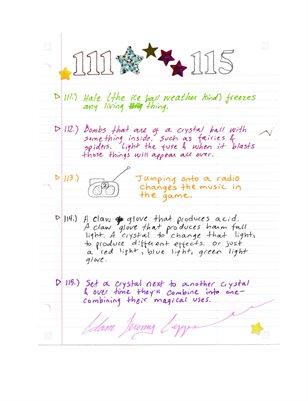 111 115
111.) Hale (the ice ball weather kind) freezes
any living thing.
112.) Bombs that are of a crystal ball with
something inside. Such as fairies &
spiders. Light the fuse & when it blasts
those things will appear all over.
113.) Jumping onto a radio
changes the music in
the game.
114.) A claw glove that produces acid.
A claw glove that produces harm full
light. A crystal to change that light,
to produce different effects. Or just
a red light, blue light, green light
glove.
115.) Set a crystal next to another crystal
& over time they combine into one-
combining their magical uses.
Adam Jeremy